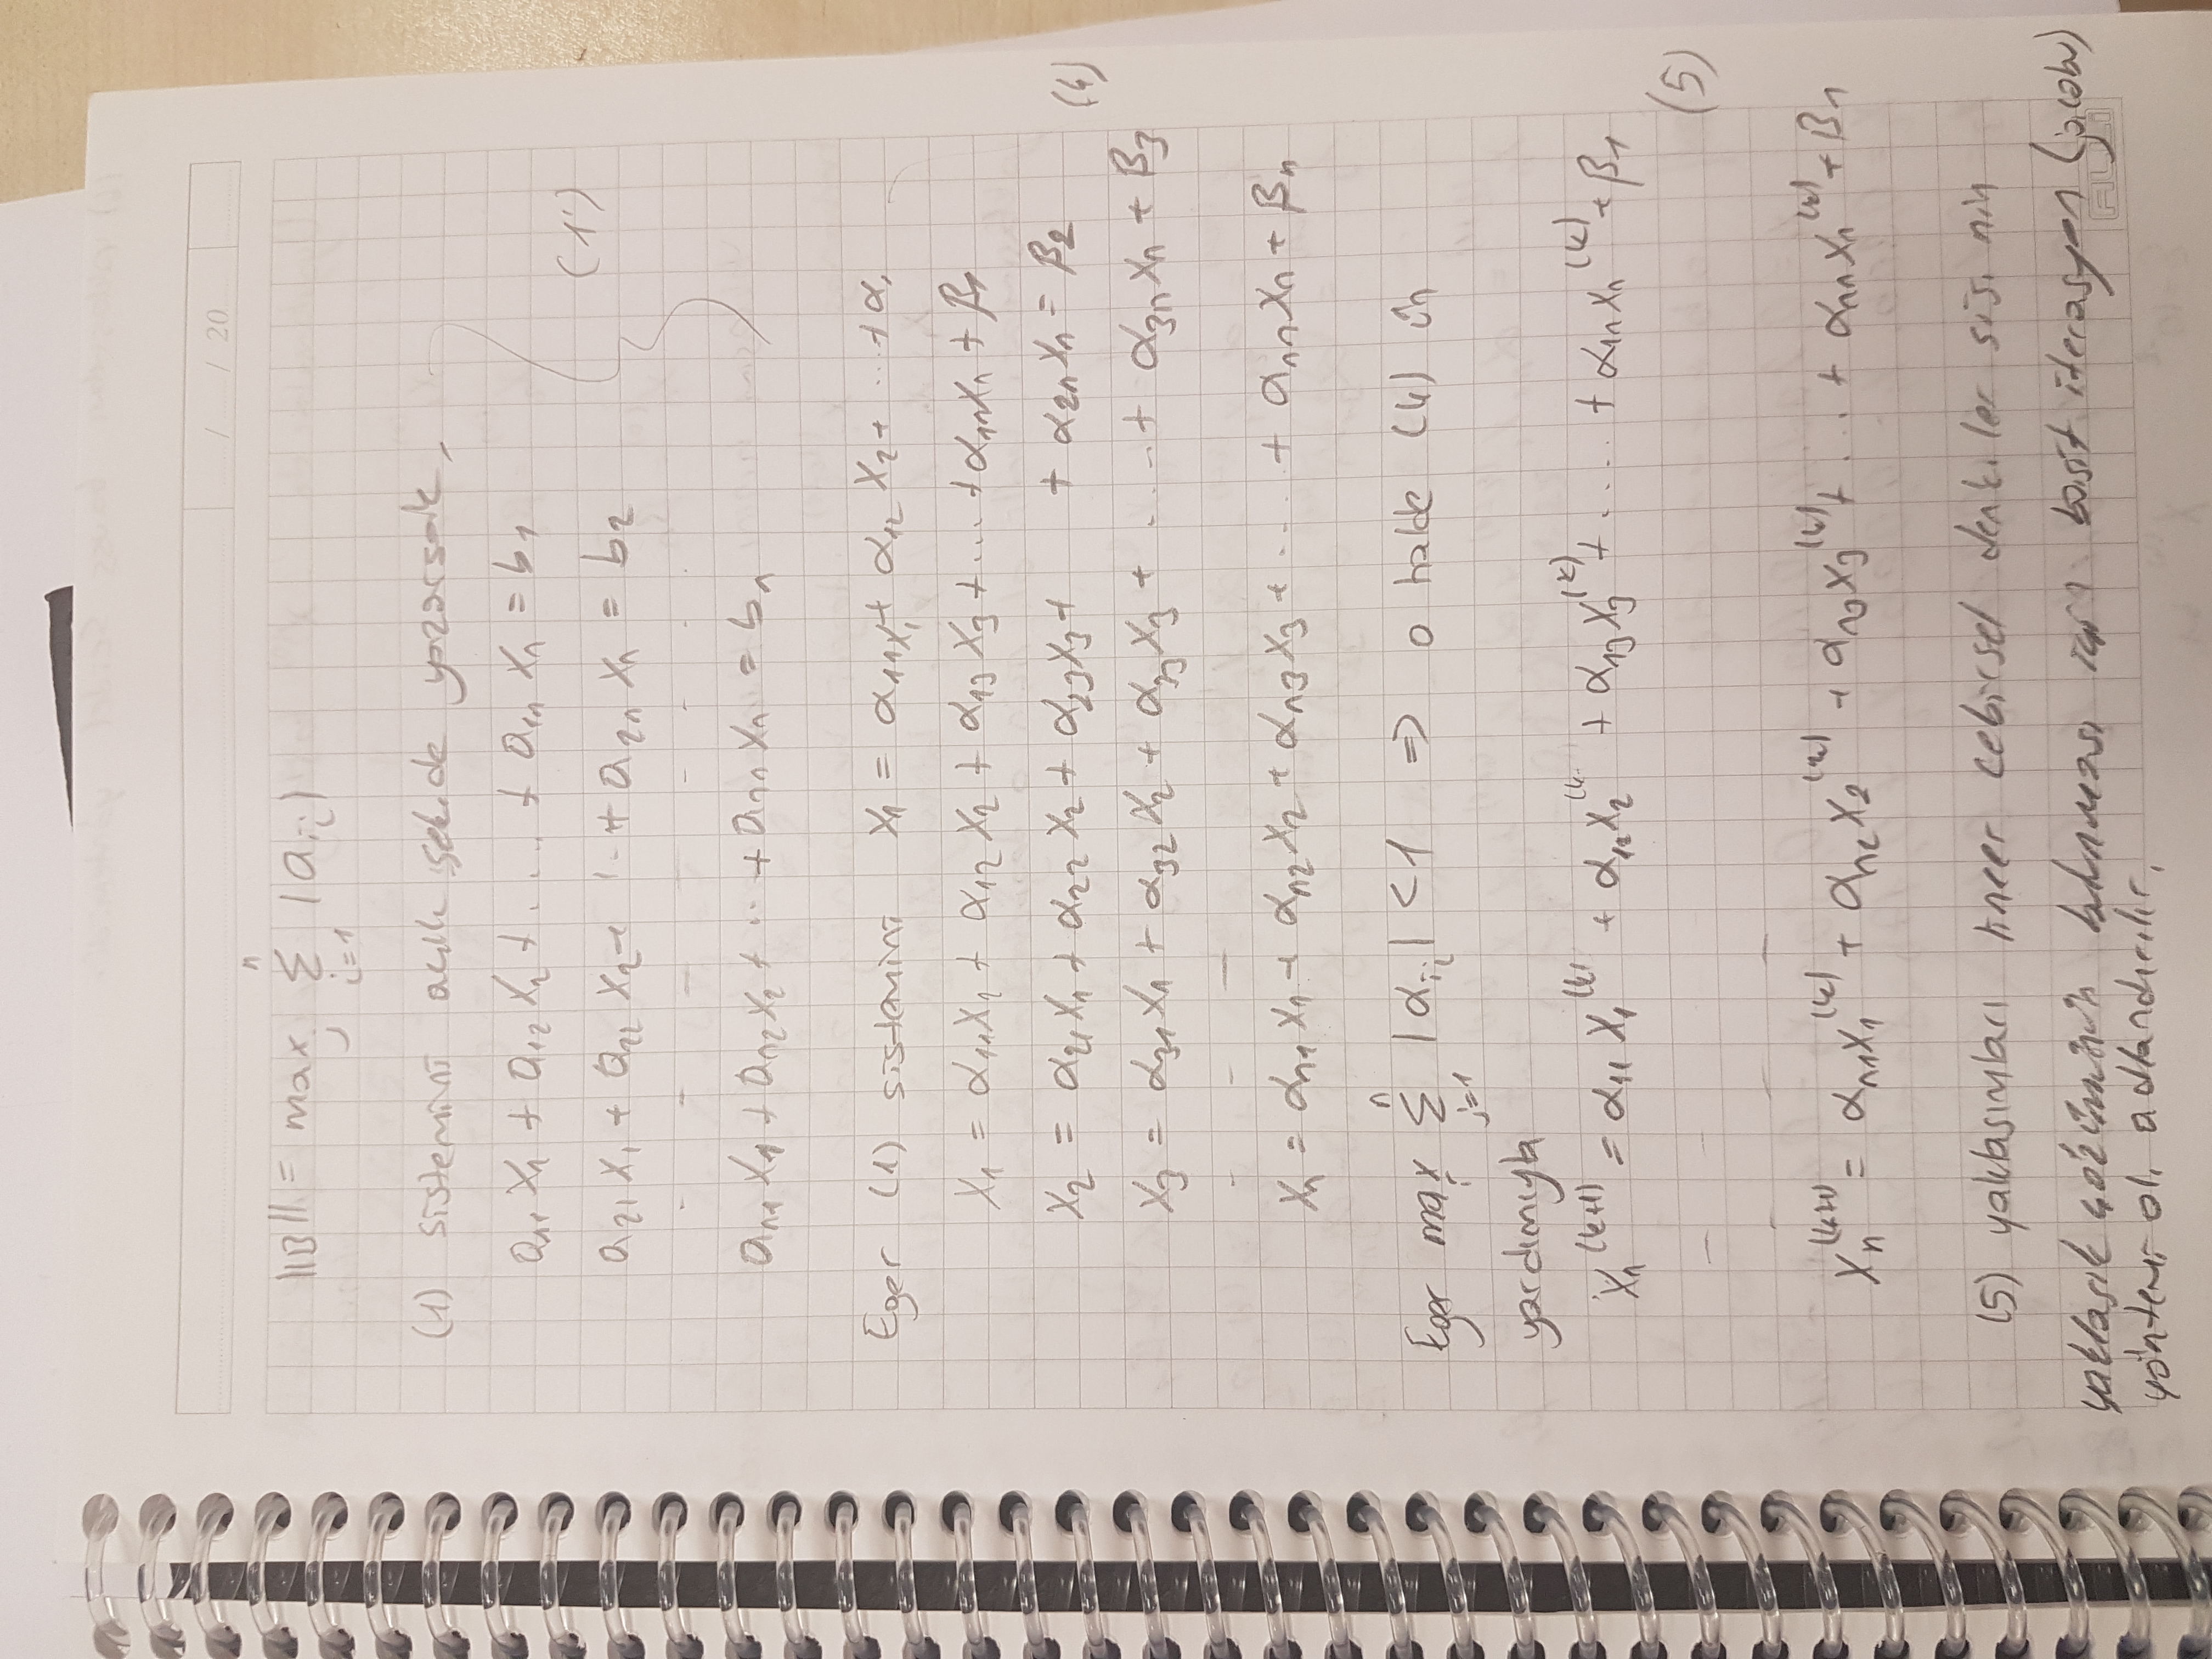 / / 20
||B|| = max_j Σ_{i=1}^{n} |a_{ij}|
(1) sistemini açık şekide yazarsak,
a₁₁ x₁ + a₁₂ x₂ + .... + a₁ₙ xₙ = b₁
a₂₁ x₁ + a₂₂ x₂ + ... + a₂ₙ xₙ = b₂
(1')
- - - - - - - -
aₙ₁ x₁ + aₙ₂ x₂ + ... + aₙₙ xₙ = bₙ
Eger (1) sistemini x₁ = α₁₁x₁ + α₁₂ x₂ + ... + α₁
x₁ = α₁₁x₁ + α₁₂ x₂ + α₁₃ x₃ + ... + α₁ₙxₙ + β₁
x₂ = α₂₁x₁ + α₂₂ x₂ + α₂₃x₃ + + α₂ₙxₙ = β₂
(4)
x₃ = α₃₁x₁ + α₃₂ x₂ + α₃₃x₃ + ..... + α₃ₙ xₙ + β₃
- - -
xₙ = αₙ₁ x₁ + αₙ₂x₂ + αₙ₃x₃ + .... + αₙₙxₙ + βₙ
Eger max_i Σ_{j=1}^{n} |α_{ij}| < 1 => o halde (4) ün
yardımıyla
x₁^(k+1) = α₁₁ x₁^(k) + α₁₂x₂^(k + α₁₃x₃^(k) + ..... + α₁ₙxₙ^(k) + β₁
- -
(5)
- - -
xₙ^(k+1) = αₙ₁x₁^(k) + αₙ₂x₂^(k) + αₙ₃x₃^(k) + ... + αₙₙxₙ^(k) + βₙ
(5) yaklaşımları lineer cebirsel denk. ler sis. nin
yaklaşık çözümünün bulunması için basit iterasyon (jacobi)
yöntemi ol. adlandırılır.